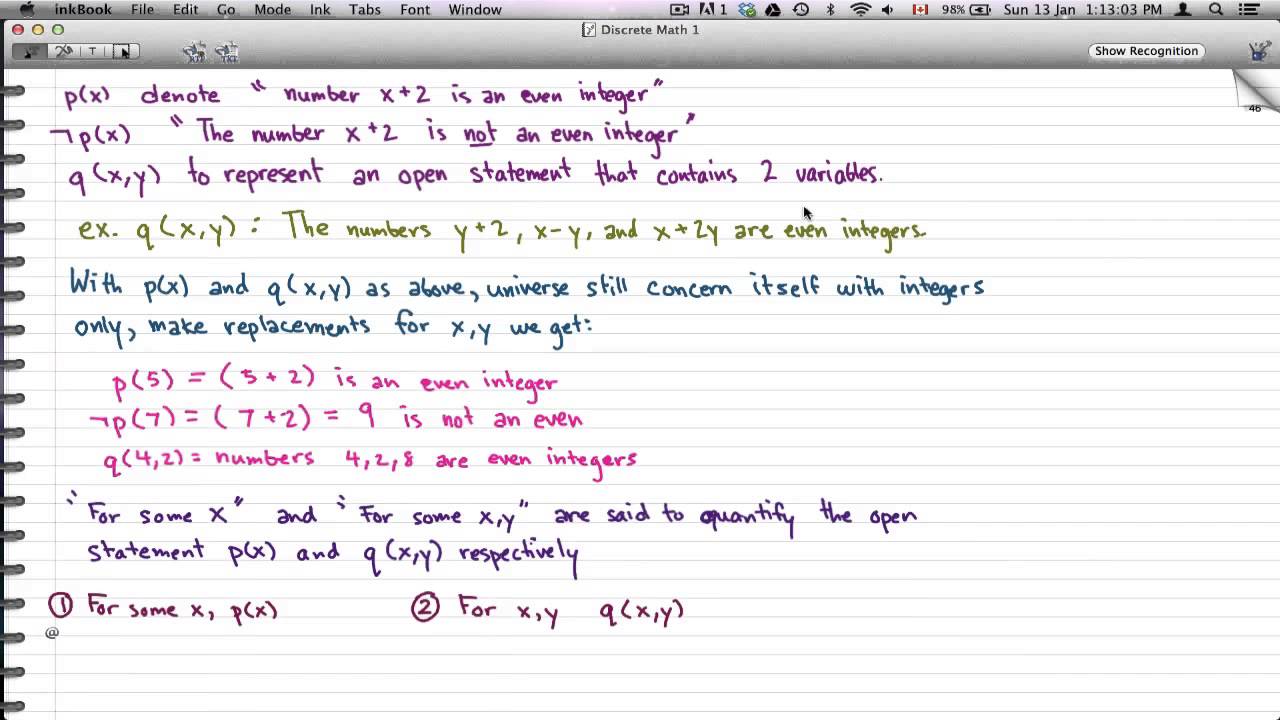 inkBook File Edit Go Mode Ink Tabs Font Window 1 98% Sun 13 Jan 1:13:03 PM
Discrete Math 1
T Show Recognition
46
p(x) denote " number x+2 is an even integer"
¬p(x) " The number x+2 is not an even integer"
q(x,y) to represent an open statement that contains 2 variables.
ex. q(x,y) : The numbers y+2, x-y, and x+2y are even integers.
With p(x) and q(x,y) as above, universe still concern itself with integers
only, make replacements for x,y we get:
p(5) = (5+2) is an even integer
¬p(7) = (7+2) = 9 is not an even
q(4,2) = numbers 4,2,8 are even integers
"For some x" and "For some x,y" are said to quantify the open
statement p(x) and q(x,y) respectively
① For some x, p(x) ② For x,y q(x,y)
@